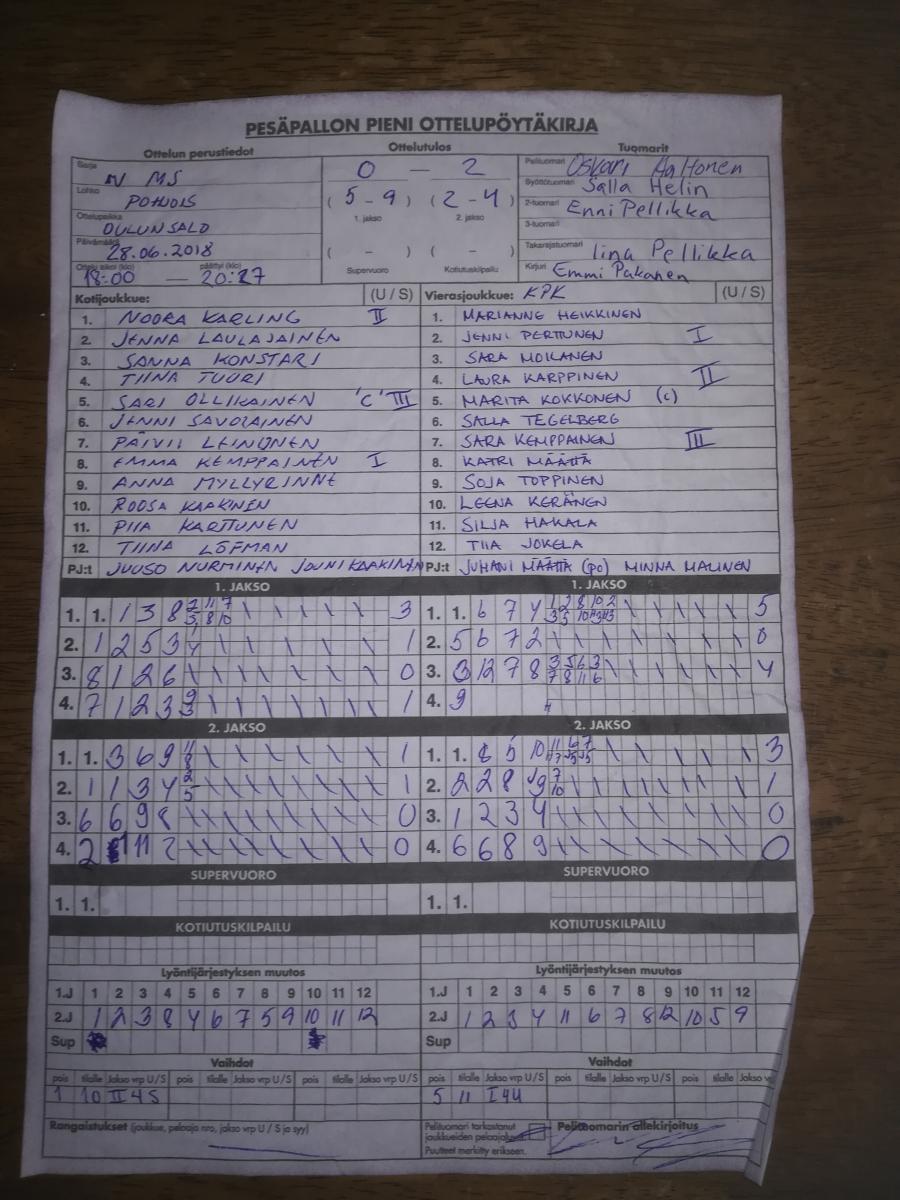 PESÄPALLON PIENI OTTELUPÖYTÄKIRJA
Ottelun perustiedot Ottelutulos Tuomarit
Sarja N MS 0 – 2 Pelituomari Oskari Aaltonen
Lohko POHJOIS ( 5 - 9 ) ( 2 - 4 ) Syöttötuomari Salla Helin
1. jakso 2. jakso 2-tuomari Enni Pellikka
Ottelupaikka OULUNSALO 3-tuomari
Päivämäärä 28.06.2018 ( - ) ( - ) Takarajatuomari Iina Pellikka
Ottelu alkoi (klo) 18:00 — päättyi (klo) 20:27 Supervuoro Kotiutuskilpailu Kirjuri Emmi Pakanen
Kotijoukkue: (U / S) Vierasjoukkue: KPK (U / S)
1. NOORA KARLING II 1. MARIANNE HEIKKINEN
2. JENNA LAULAJAINEN 2. JENNI PERTTUNEN I
3. SANNA KONSTARI 3. SARA MOILANEN
4. TIINA TUURI 4. LAURA KARPPINEN II
5. SARI OLLIKAINEN 'C' III 5. MARITA KOKKONEN (c)
6. JENNI SAVOLAINEN 6. SALLA TEGELBERG
7. PÄIVII LEINONEN 7. SARA KEMPPAINEN III
8. EMMA KEMPPAINEN I 8. KATRI MÄÄTTÄ
9. ANNA MYLLYRINNE 9. SOJA TOPPINEN
10. ROOSA KAAKINEN 10. LEENA KERÄNEN
11. PIIA KARTTUNEN 11. SILJA HAKALA
12. TIINA LÖFMAN 12. TIIA JOKELA
PJ:t JUUSO NURMINEN JOUNI KAAKINEN PJ:t JUHANI MÄÄTTÄ (po) MINNA MALINEN
1. JAKSO 1. JAKSO
1. 1. 1 3 8 3 1. 1. 6 7 4 5
2. 1 2 5 3 1 2. 5 6 7 2 0
3. 8 1 2 6 0 3. 3 12 7 8 4
4. 7 1 2 3 1 4. 9
2. JAKSO 2. JAKSO
1. 1. 3 6 9 1 1. 1. 8 5 10 3
2. 1 1 3 4 1 2. 2 2 8 9 1
3. 6 6 9 8 0 3. 1 2 3 4 0
4. 2 11 2 0 4. 6 6 8 9 0
SUPERVUORO SUPERVUORO
1. 1. 1. 1.
KOTIUTUSKILPAILU KOTIUTUSKILPAILU
Lyöntijärjestyksen muutos Lyöntijärjestyksen muutos
1.J 1 2 3 4 5 6 7 8 9 10 11 12 1.J 1 2 3 4 5 6 7 8 9 10 11 12
2.J 1 2 3 8 4 6 7 5 9 10 11 12 2.J 1 2 3 4 11 6 7 8 12 10 5 9
Sup Sup
Vaihdot Vaihdot
pois tilalle Jakso vrp U/S pois tilalle Jakso vrp U/S pois tilalle Jakso vrp U/S pois tilalle Jakso vrp U/S pois tilalle Jakso vrp U/S pois tilalle Jakso v
1 10 II 4 S 5 11 I 4U
Rangaistukset (joukkue, pelaaja nro, jakso vrp U / S ja syy) Pelituomari tarkastanut Pelituomarin allekirjoitus
joukkueiden pelaajaluvat
Puutteet merkitty erikseen.